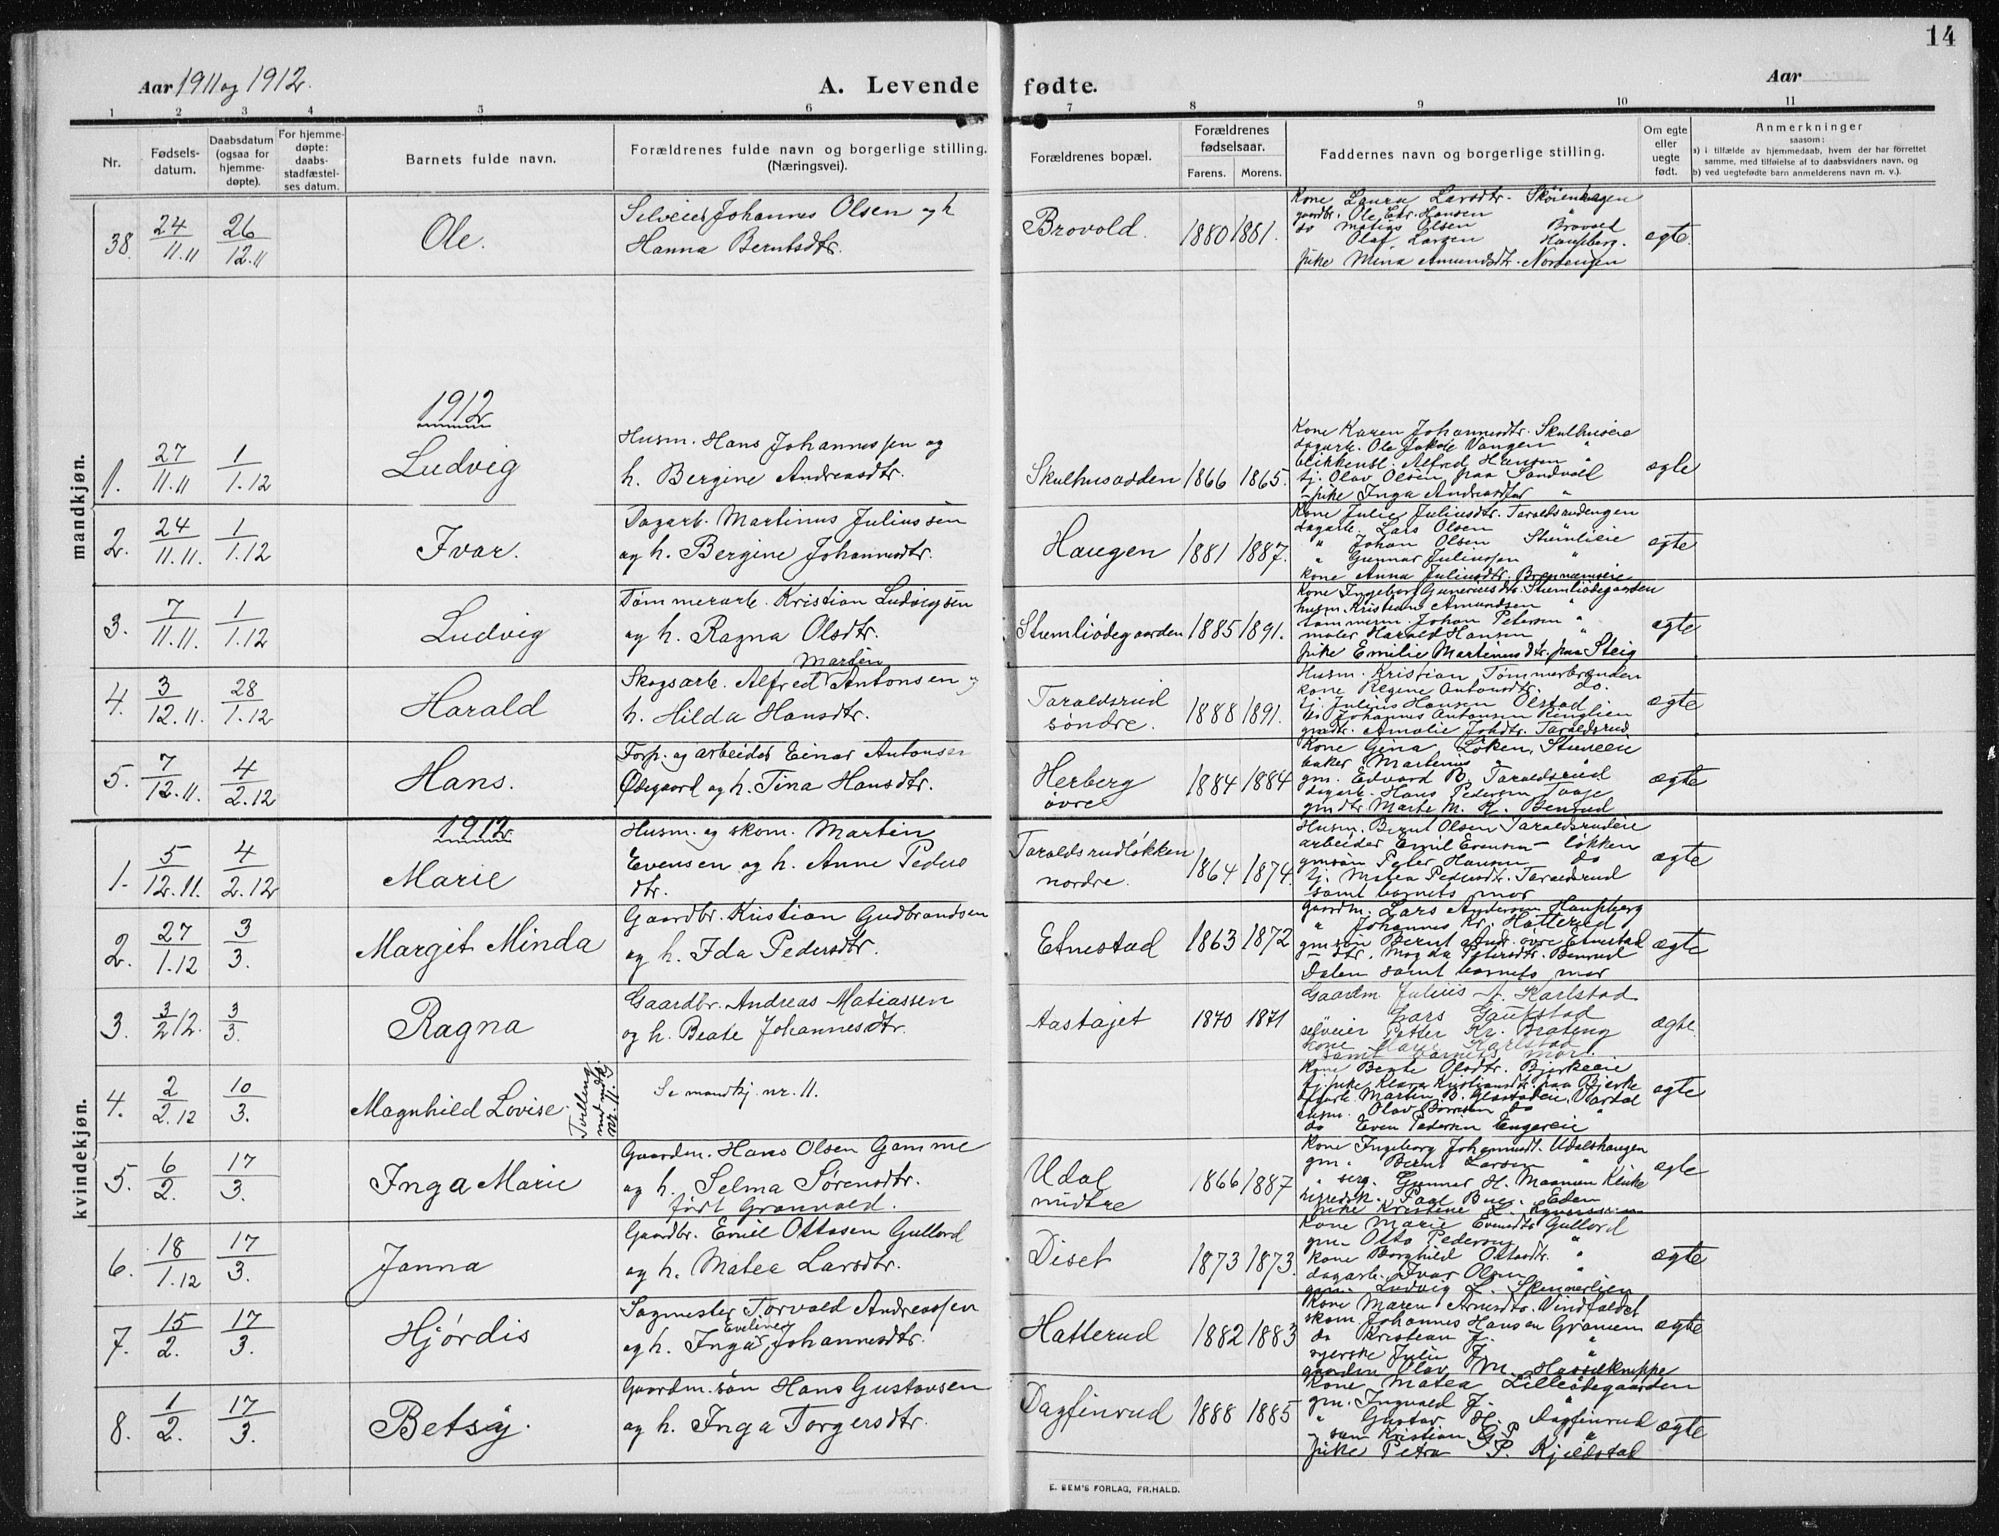 14
Aar 1911 og 1912.
A. Levende fødte.
Aar
1 2 3 4 5 6 7 8 9 10 11
Nr.
Fødselsdatum.
Daabsdatum (ogsaa for hjemmedøpte).
For hjemmedøpte: daabsstadfæstelses datum.
Barnets fulde navn.
Forældrenes fulde navn og borgerlige stilling.
(Næringsvei).
Forældrenes bopæl.
Forældrenes fødselsaar.
Farens. Morens.
Faddernes navn og borgerlige stilling.
Om egte eller uegte født.
Anmerkninger
saasom:
a) i tilfælde av hjemmedaab, hvem der har forrettet
samme, med tilføielse af to daabsvidners navn, og
b) ved uegtefødte barn anmelderens navn m. v.).
mandkjøn.
38. 24/11.11 26/12.11 Ole.
Selveier Johannes Olsen og h
Hanna Berntsdtr.
Brovold. 1880 1881.
Kone Laura Larsdtr. Skøienhagen
gaardbr. Ole Chr. Hansen "
do Matias Olsen Brovold
Olaf Larsen Haugberg.
pike Mina Amundsdtr. Nordengen
egte.
1912
1. 27/11.11 1/1.12 Ludvig
Husm. Hans Johannessen og
h. Bergine Andreasdtr.
Skulhusodden 1866 1865.
Kone Karen Johannesdtr. Skulhuseie
dagarb. Ole Jakob Vangen "
blikkensl. Alfred Hansen "
tj. Olav Olsen paa Sandvold
- pike Inga Andreasdtr "
egte
2. 24/11.11. 1/1.12 Ivar.
Dagarb. Martinus Juliussen
og h. Bergine Johannesdtr.
Haugen 1881 1887.
Kone Julie Juliusdtr. Taraldsrudengen
dagarb. Lars Olsen
" Johan Olsen Stumlieie
" Gunnar Juliussen "
kone Anna Juliusdtr.
egte
3. 7/11.11. 1/1.12 Ludvig
Tømmerarb. Kristian Ludvigsen
og h. Ragna Olsdtr.
Stumliødegaarden 1885 1891.
Kone Ingeborg Gunerius dtr. Stumliødegaarden
husm. Kristian Amundsen "
tømmerm. Johan Petersen "
maler Harald Hansen "
pike Emilie Martinusdtr. paa Steig
egte
4. 3/12.11. 28/1.12 Harald
Skogsarb. Alfred Martin Antonsen og
h. Hilda Hansdtr.
Taraldsrud søndre. 1888 1891.
Husm. Kristian Tømmerbraaden
kone Regine Antonsdtr. do.
tj. Julius Hansen Olstad
do Johannes Antonsen Ringlien
gmdtr. Amalie Johdtr. Taraldsrud.
egte
5. 7/12.11. 4/2.12 Hans.
Forp. og arbeider Einar Antonsen
Ødegaard og h. Tina Hansdtr.
Herberg øvre 1884 1884
Kone Gina Løken, Stumeie
baker Martinius " "
gm. Edvard B. Taraldsrud
dagarb. Hans Pedersen Taaje
gmdtr. Marte M. K. Benrud
egte
kvindekjøn.
1912
1. 5/12.11. 4/2.12 Marie
Husm. og skom. Martin
Evensen og h. Anne Peders
dtr.
Taraldsrudløkken nordre. 1864 1874.
Husm. Bernt Olsen Taraldsrudeie
arbeider Emil Evensen - løkken
gmsøn Peter Hansen do
tj. Matea Pedersdtr. Taraldsrud
samt barnets mor
egte
2. 27/1.12 3/3. Margit Minda
Gaardbr. Kristian Gudbrandsen
og h. Ida Pedersdtr.
Etnestad 1863 1872
gaardm. Lars Andersen Haugberg
" Johannes Kr. Hatterud
gm søn Bernt Andr. øvre Etnestad
g- dtr. Magda Petersdtr. Benrud
Dalen samt barnets mor
egte
3. 3/2 12. 3/3 Ragna
Gaardbr. Andreas Matiassen
og h. Beate Johannesdtr.
Aastajet 1870 1871
Gaardm Julius A. Karlstad
" Lars Gaukstad
selveier Petter Kr. Brateng
kone Maren Karlstad
samt barnets mor.
egte
4. 2/2.12 10/3. Magnhild Lovise.
Tvilling med mdkj. nr. 11.
Se mandkj. nr. 11.
Kone Beate Olsdtr. Bjerkeeie
tj. pike Klara Kristiansdtr. paa Bjerke
Martin B. Glæstadeie, Vardal
husm. Olav Børresen do "
do Even Pedersen Engereie
egte
5. 6/2. 17/3. Inga Marie
Gaardm. Hans Olsen Gamme
og h. Selma Sørensdtr.
født Granvold.
Udal midtre 1866 1887
Kone Ingeborg Johannesdt. Udalshaugen
gm. Bernt Larsen "
" serg. Gunnar H. Maanum Kluke
Paal Bue. Eden
pike Kristine L.
egte
6. 18/1.12 17/3. Janna
Gaardbr. Emil Ottosen Gullord
og h. Matea Larsdtr.
Diset 1873 1873.
Kone Marie Evensdtr Gullord
gm. Otto Pedersen "
kone Borghild Ottosdtr. "
dagarb. Ivar Olsen
gm. Ludvig L. Skinnerlien
egte
7. 15/2. 17/3. Hjørdis
Sagmester Torvald Andreassen
og h. Inga Eveline Johannesdtr.
Hatterud 1882 1883
Kone Maren Arnesdtr. Vindfaldet
skom. Johannes Hansen Granum
do Kristian J. "
syerske Julie J. "
Olav M. Hasselknippe
egte
8. 1/2. 17/3. Betsy.
Gaardm. søn Hans Gustavsen
og h. Inga Torgersdtr.
Dagfinrud 1888 1885
Kone Matea Lilleødegaarden
gm. Ingvald J. "
" Gustav H. Dagfinrud
- søn Kristian G. P. "
pike Petra P. Kjeldstad
egte
E. SEM'S FORLAG, FR.HALD.